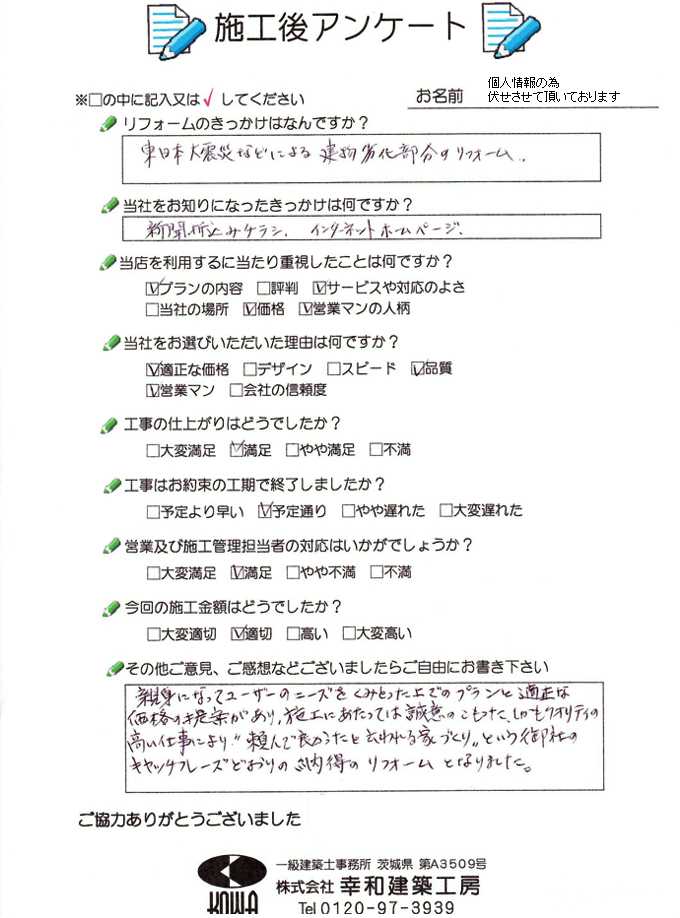 施工後アンケート
※□の中に記入又は✓してください
お名前 個人情報の為
伏せさせて頂いております
リフォームのきっかけはなんですか？
東日本大震災などによる建物劣化部分のリフォーム。
当社をお知りになったきっかけは何ですか？
新聞折込みチラシ、インターネットホームページ、
当店を利用するに当たり重視したことは何ですか？
☑プランの内容 □評判 ☑サービスや対応のよさ
□当社の場所 ☑価格 ☑営業マンの人柄
当社をお選びいただいた理由は何ですか？
☑適正な価格 □デザイン □スピード ☑品質
☑営業マン □会社の信頼度
工事の仕上がりはどうでしたか？
□大変満足 ☑満足 □やや満足 □不満
工事はお約束の工期で終了しましたか？
□予定より早い ☑予定通り □やや遅れた □大変遅れた
営業及び施工管理担当者の対応はいかがでしょうか？
□大変満足 ☑満足 □やや不満 □不満
今回の施工金額はどうでしたか？
□大変適切 ☑適切 □高い □大変高い
その他ご意見、ご感想などございましたらご自由にお書き下さい
親身になってユーザーのニーズをくみとった上でのプランと適正な
価格の提案があり、施工にあたっては誠意のこもった、しかもクオリティの
高い仕事により、"頼んで良かったと云われる家づくり"という御社の
キャッチフレーズどおりの納得のリフォームとなりました。
ご協力ありがとうございました
一級建築士事務所 茨城県 第A3509号
KOWA 株式会社 幸和建築工房
Tel 0120-97-3939